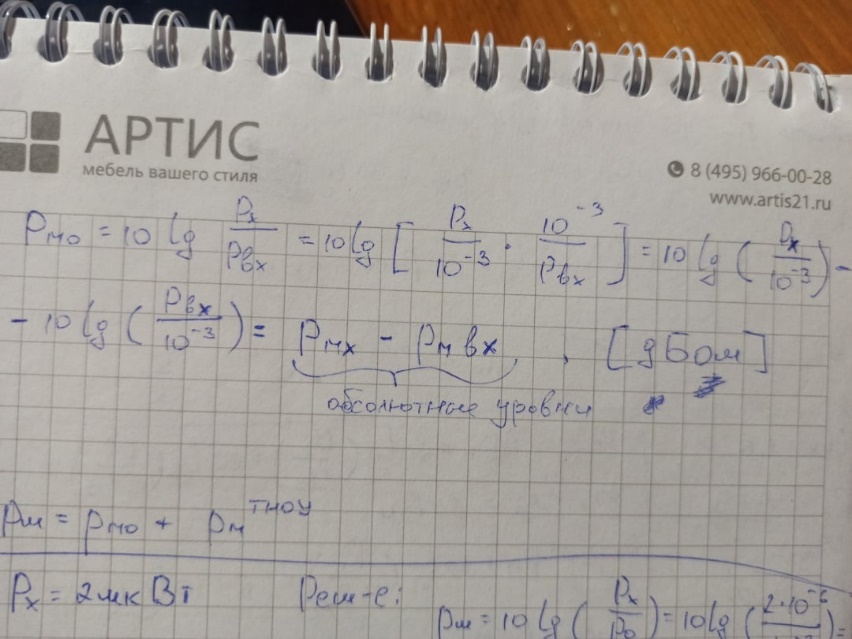 АРТИС
мебель вашего стиля
8 (495) 966-00-28
www.artis21.ru
Pмо = 10 lg Pх/Pвх = 10 lg [Pх/10⁻³ · 10⁻³/Pвх] = 10 lg (Pх/10⁻³) -
- 10 lg (Pвх/10⁻³) = Pмх - Pм вх , [дБом]
абсолютные уровни
Pм = Pмо + Pм ТНОУ
Pх = 2 мкВт Реш-е:
Pм = 10 lg (Pх/P0) = 10 lg (2·10⁻⁶